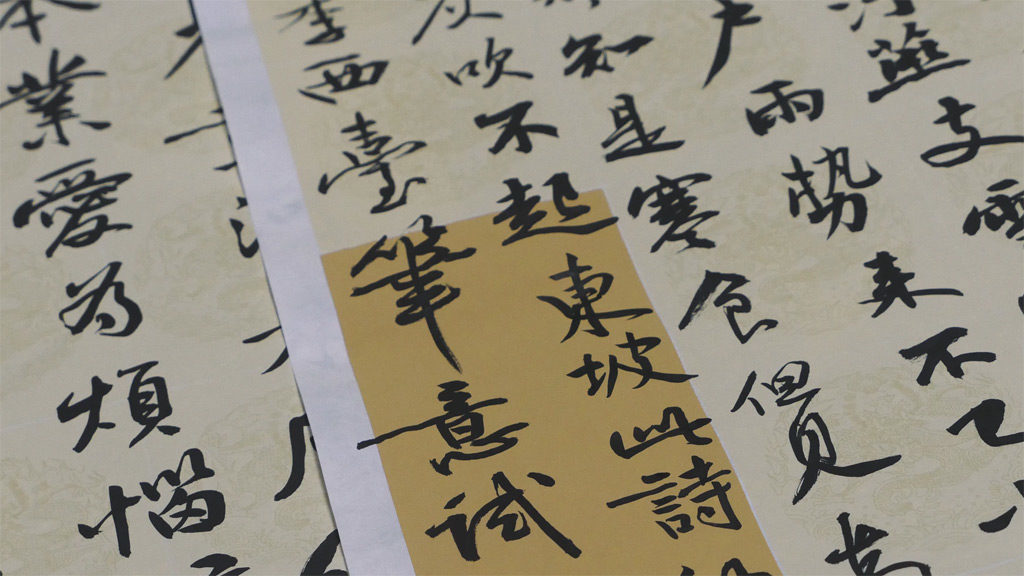 支
戶雨勢來不已
知是寒食但見
灰吹不起東坡此詩
李西臺筆意試
業愛為煩惱